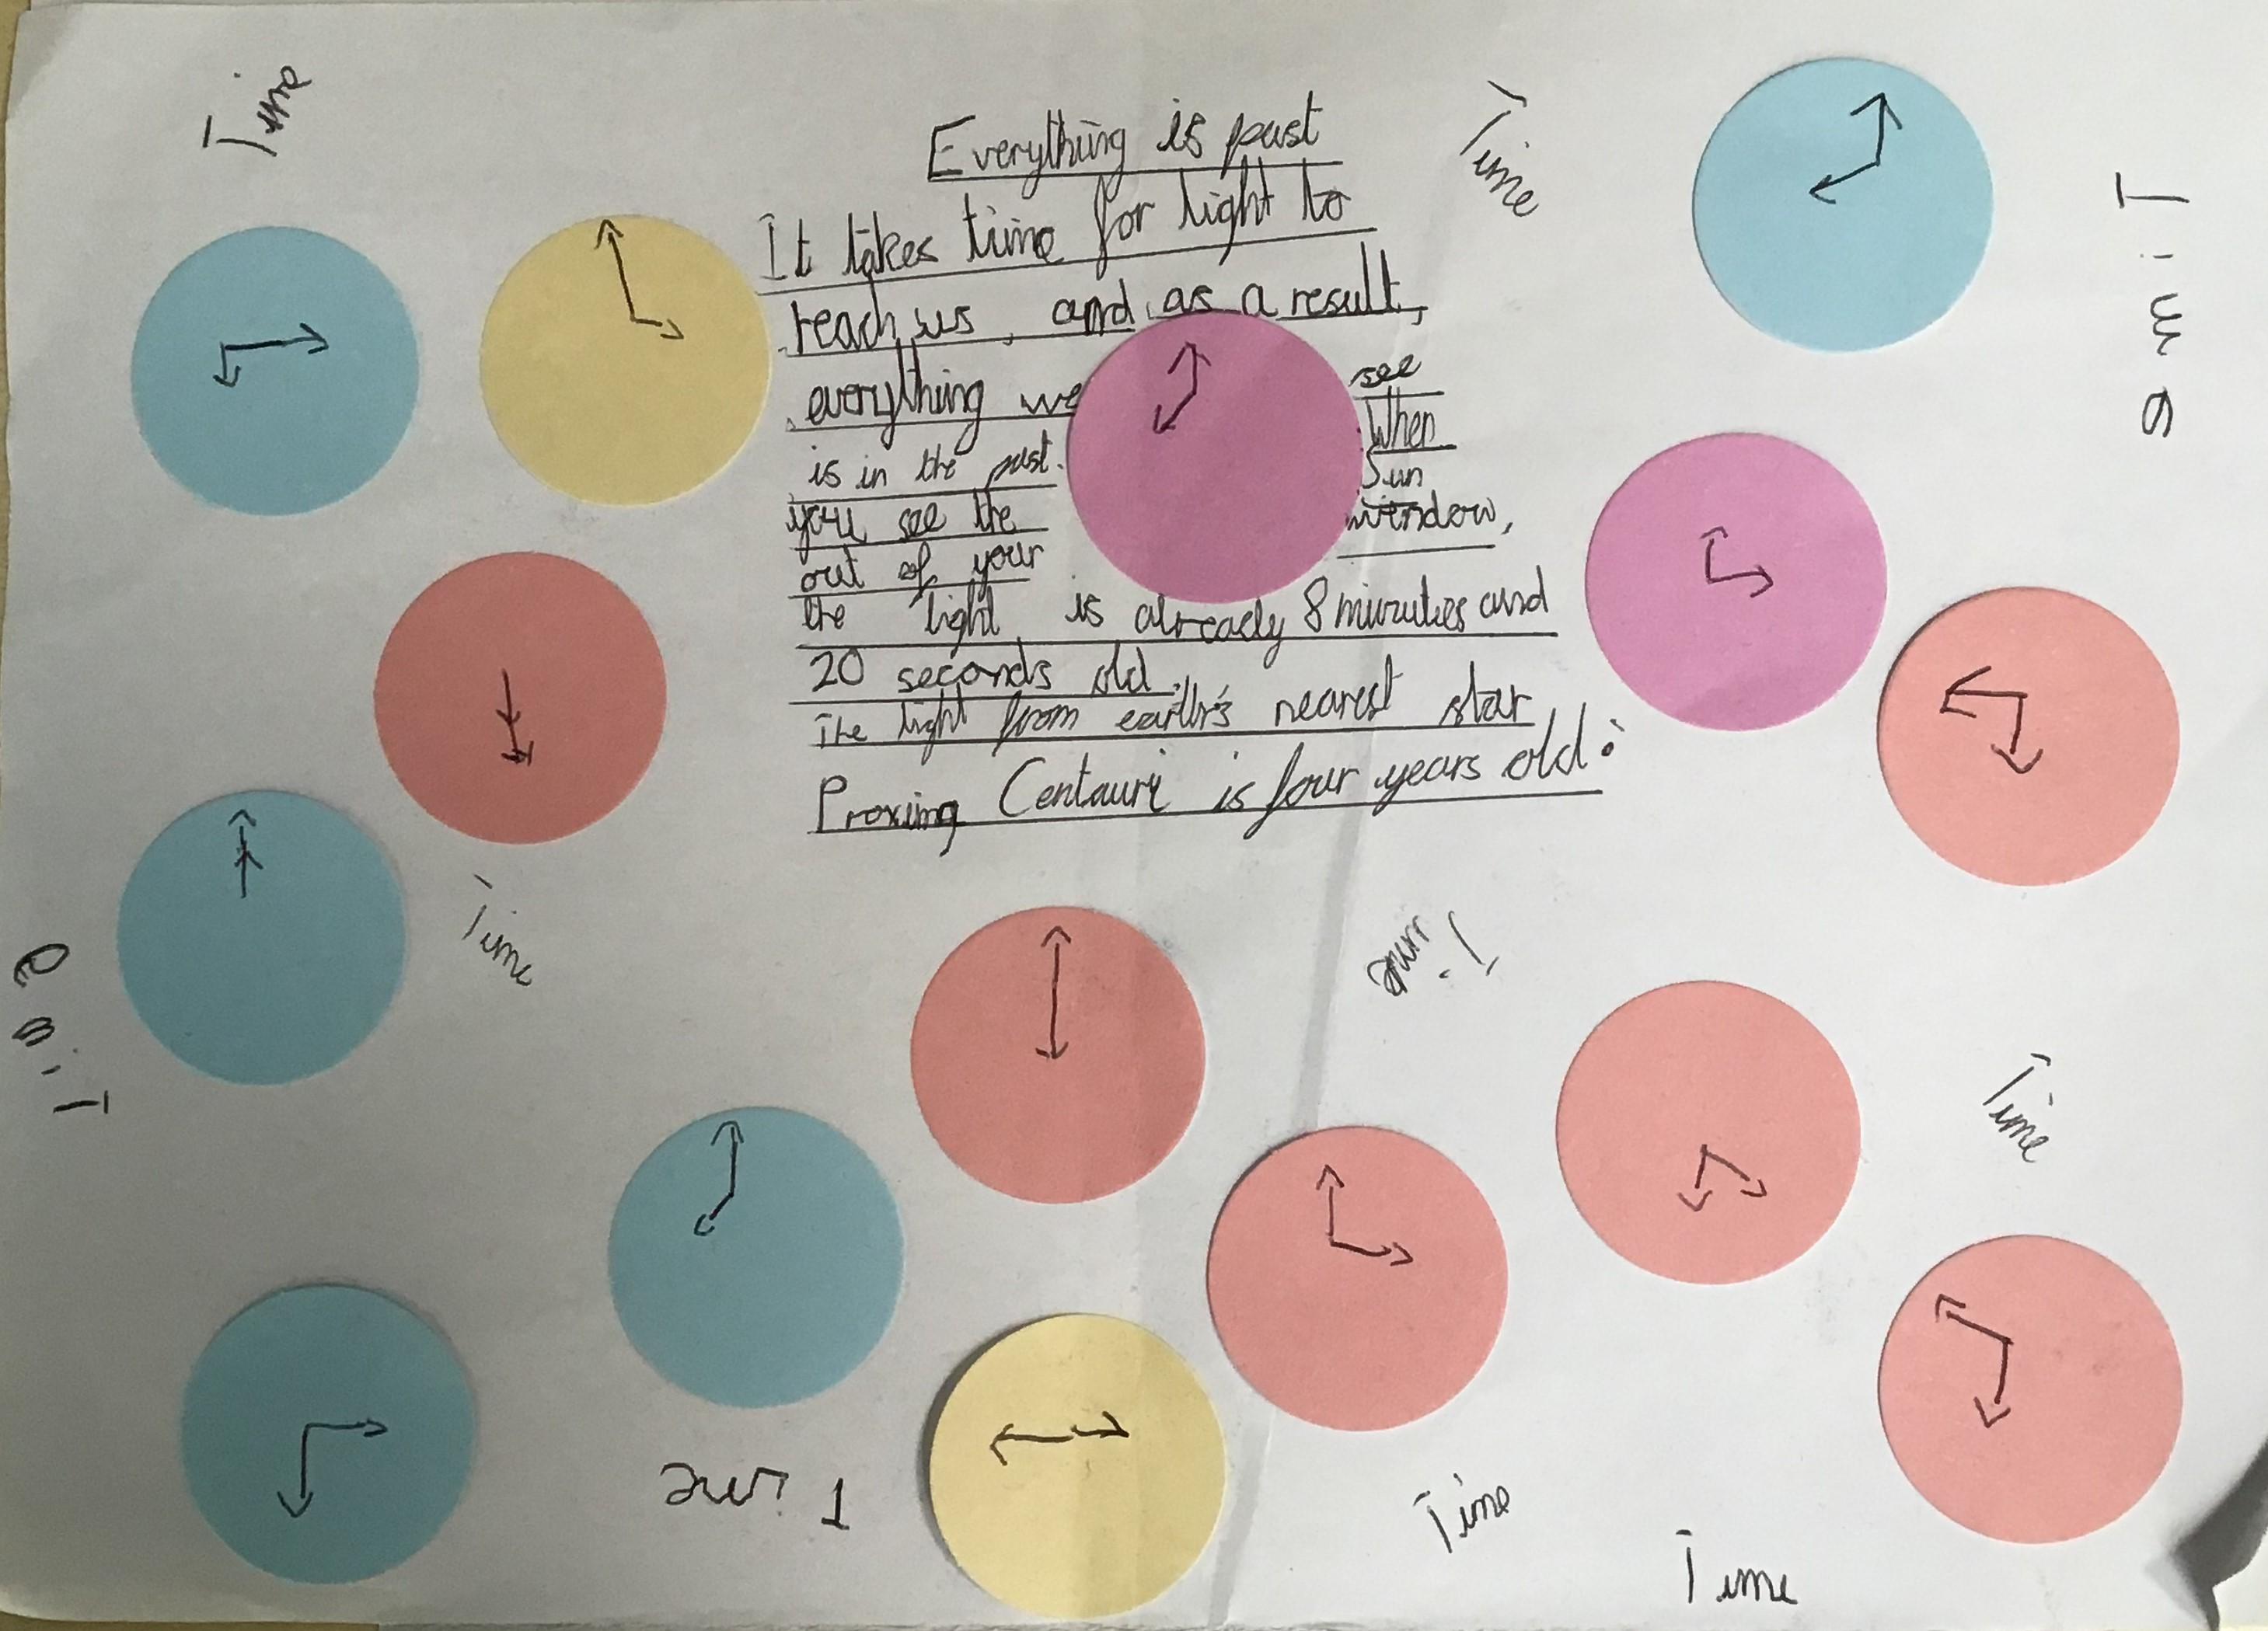 Time
Everything is past
It takes time for light to
reach us, and as a result,
everything we see
is in the past. When
you see the Sun
out of your window,
the light is already 8 minutes and
20 seconds old.
The light from earth's nearest star
Proxima Centauri is four years old.
Time
Time
Time
Time
Time
Time
Time
Time
Time